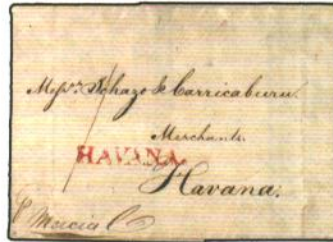 Messrs. Echazo & Carricaburu.
Merchants.
HAVANA.
Havana.
P Marcial